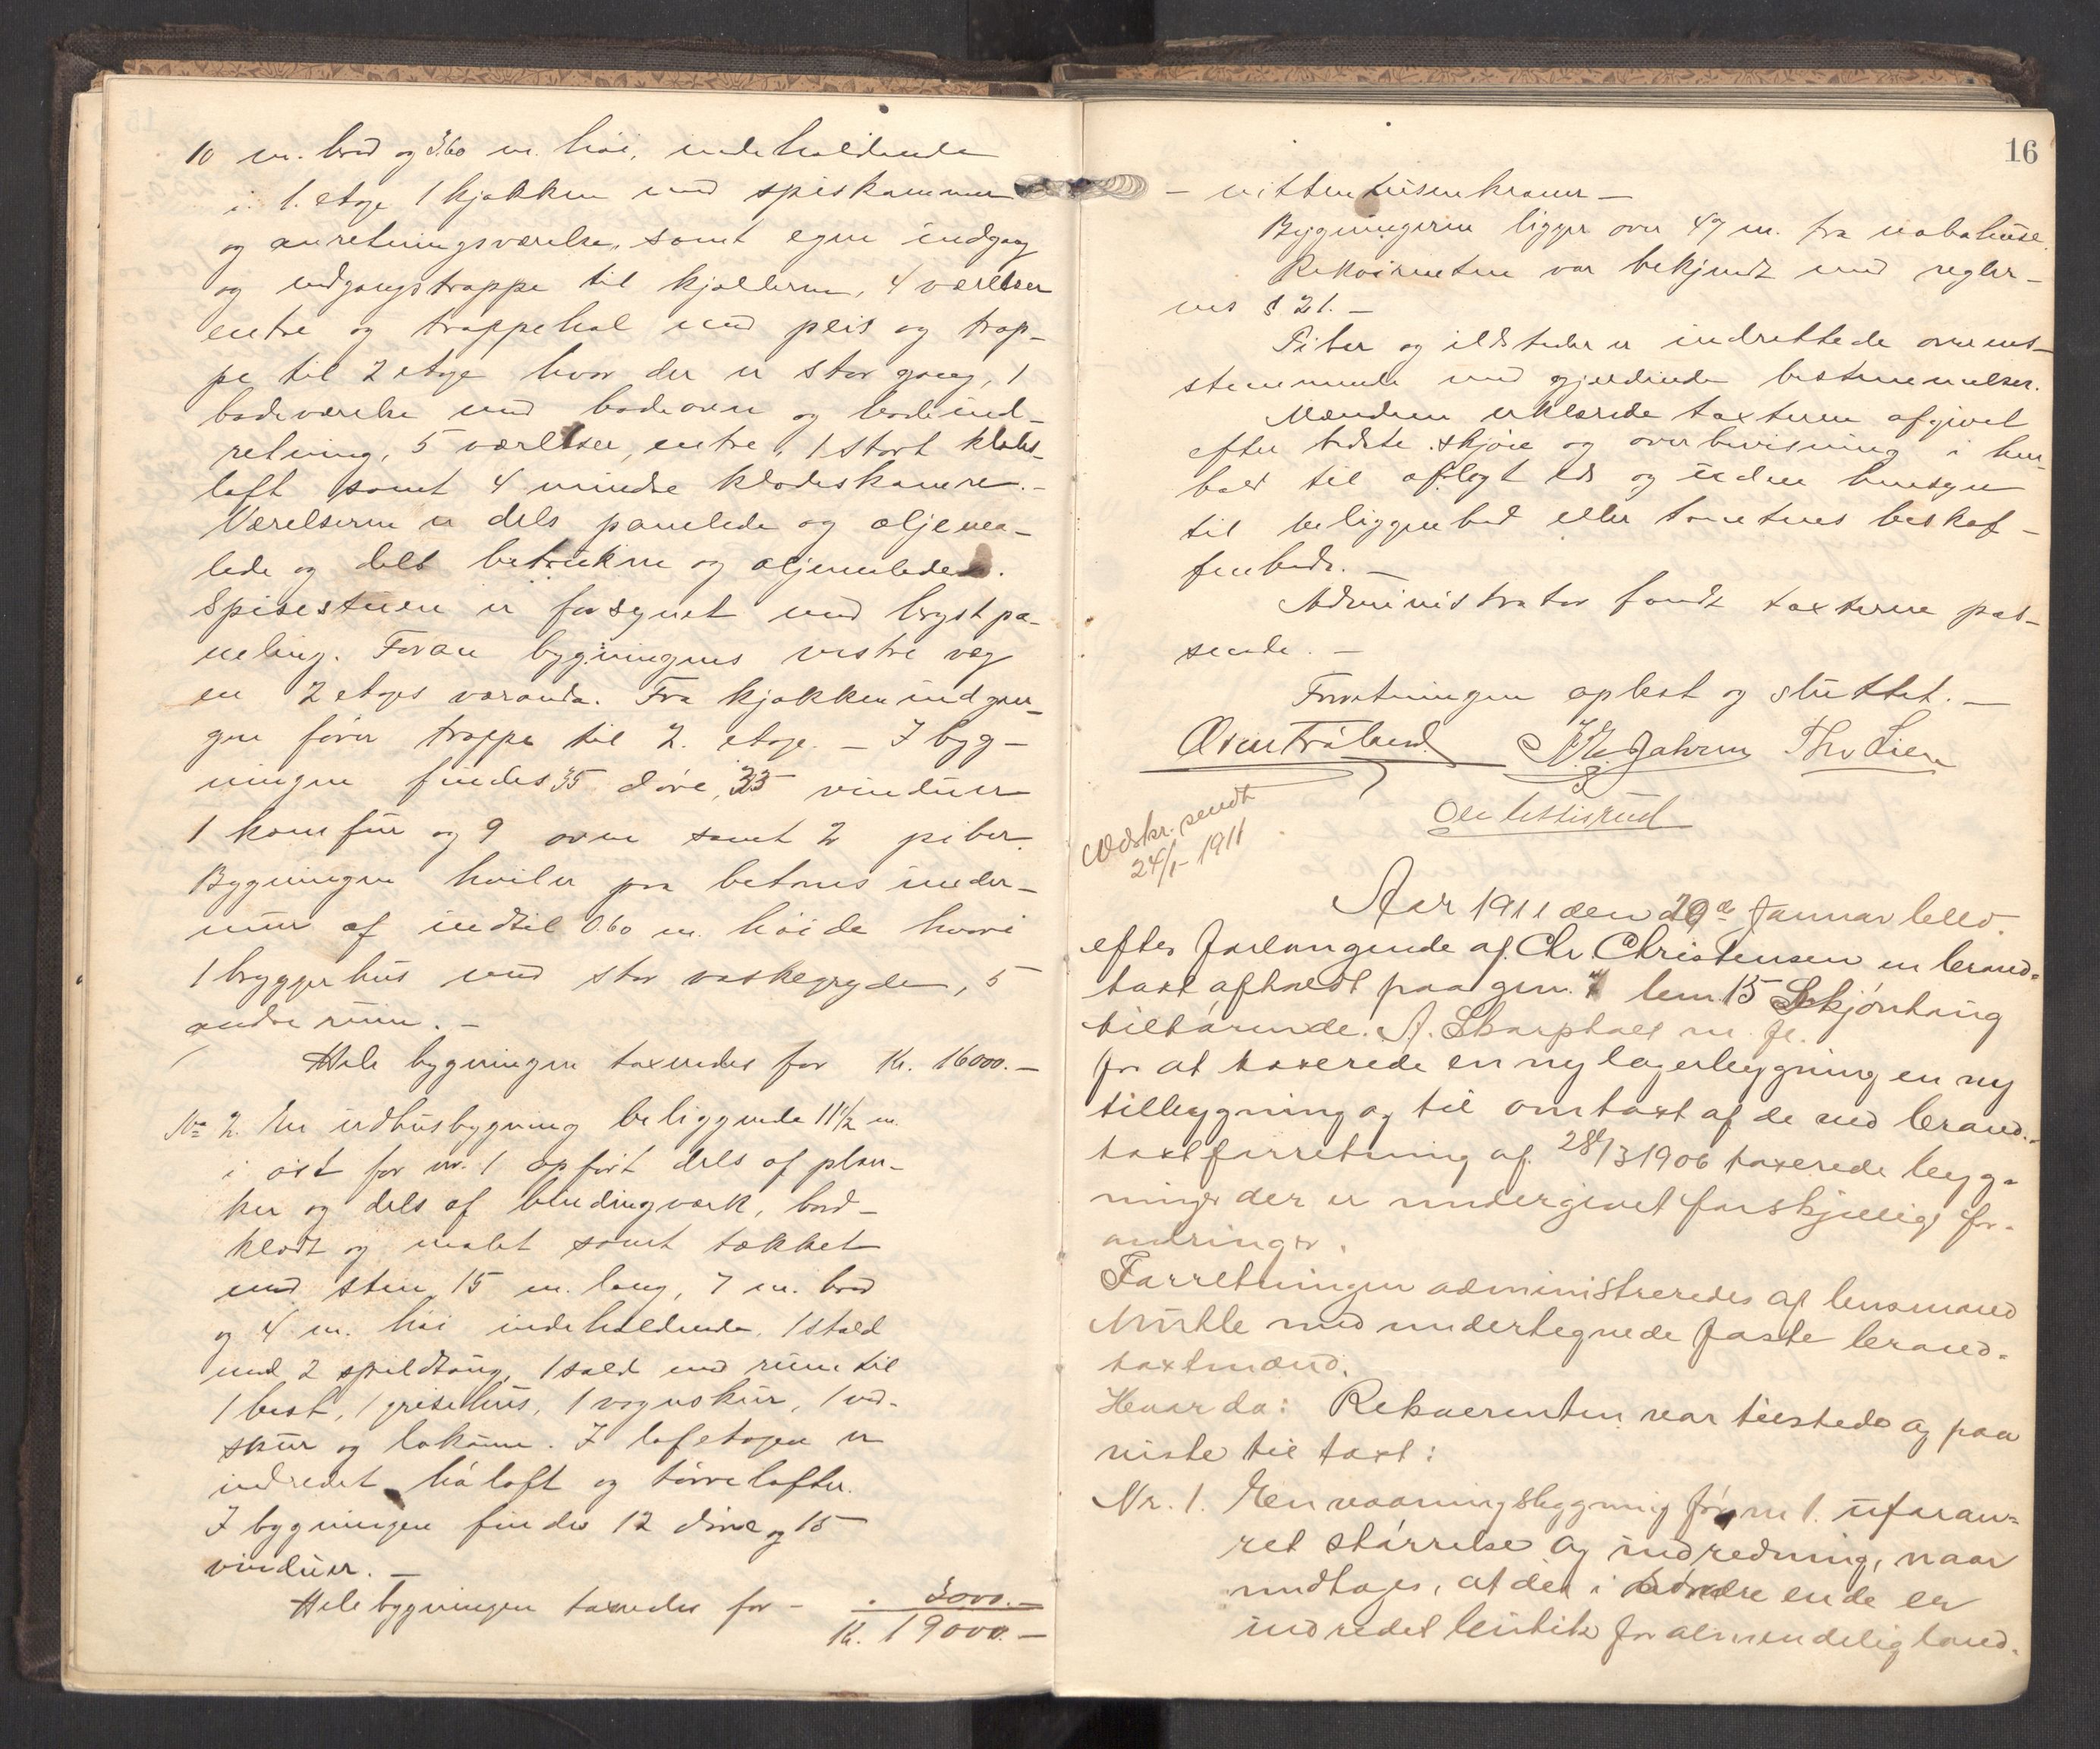 10 m. bred og 3.60 m. höi, indeholdende
i 1. etage 1 kjökken med spiskammer
og anretningsværelse, samt egen indgang
og nedgangstrappe til kjælderen, 4 værelser
entre og trappehal med peis og trap-
pe til 2 etage hvor der er stor gang, 1
badeværelse med badeovn og badeind-
retning, 5 værelser, entre, 1 stort klædes-
loft samt 4 mindre klædeskamre. -
Værelserne er dels panelede og oljema-
lede og dels betrukne og oljemalede.
Spisestuen er forsynet med brystpa-
neling. Foran bygningens vestre væg
en 2 etages veranda. Fra kjökkenindgan-
gen förer trappe til 2. etage. - I byg-
ningen findes 35 döre, 33 vinduer
1 komfür og 9 ovne samt 2 piber.
Bygningen hviler paa betons under-
mur af indtil 0.60 m. höide hvori
1 bryggerhus med stor vaskegryde, 5
andre rum. -
Hele bygningen taxeredes for Kr. 16000. -
No 2. En udhusbygning beliggende 11 1/2 m.
i öst for nr. 1 opfört dels af plan-
ker og dels af bindingværk, bord-
klædt og malet samt tækket
med sten, 15 m. lang, 7 m. bred
og 4 m. höi indeholdende, 1 stald
med 2 spildtaug, 1 stald med rum til
1 hest, 1 grisehus, 1 vognskur, 1 ved-
skur og lokum. I loftetagen er
indredet höloft og törreloft.
I bygningen findes 12 döre og 15
vinduer. -
Hele bygningen taxeredes for - " 3000. -
Kr. 19000. -
16
- nitten tusen kroner -
Bygningerne ligger over 47 m. fra nabohuse.
Rekvirenten var bekjendt med regler-
nes § 21. -
Piber og ildsteder er indrettede overens-
stemmende med gjældende bestemmelser.
Mændene erklærede taxterne afgivet
efter bedste skjön og overbevisning i hen-
hold til aflagt ed og uden hensyn
til beliggenhed eller tomtens beskaf-
fenhed. -
Administrator fandt taxterne pas-
sende. -
Forretningen oplæst og sluttet. -
Jahren Thv Lien
Udskr. sendt
24/1- 1911
Aar 1911 den 20de Januar blev
efter forlangende af Chr Christensen en brand-
taxt afholdt paa gm. 7 bm. 15 Skjönhaug
tilhörende A. Skarphol m. fl.
for at taxerede en ny lagerbygning en ny
tilbygning og til omtaxt af de ved brand-
taxtforretning af 28/3 1906 taxerede byg-
ninger der er undergivet forskjellige for-
andringer.
Forretningen administreredes af lensmand
Mürble med undertegnede faste brand-
taxtmænd.
Hvorda: Rekvirenten var tilstede og paa
viste til taxt:
Nr. 1. En vaaningsbygning för nr 1. uforan-
ret störrelse og indredning, naar
undtages, at det i söndre ende er
indredet butik for almindelig land-